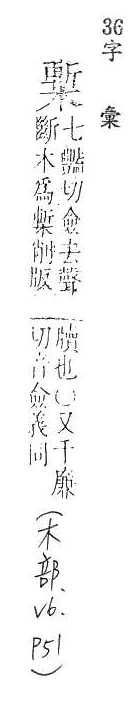 36字彙
槧
七豔切僉去聲
斷木爲槧削版
牘也○又千廉
切音僉義同
(木部. V6. P51)